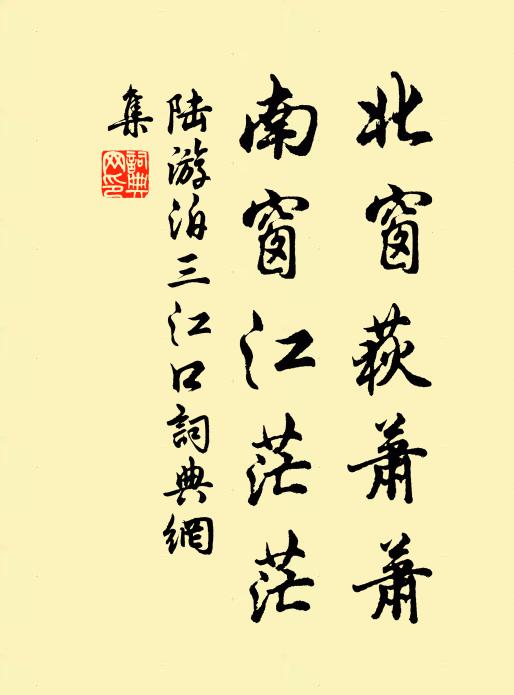 北窗荻萧萧
南窗江茫茫
陆游泊三江口詞典網
集
詞典
网印